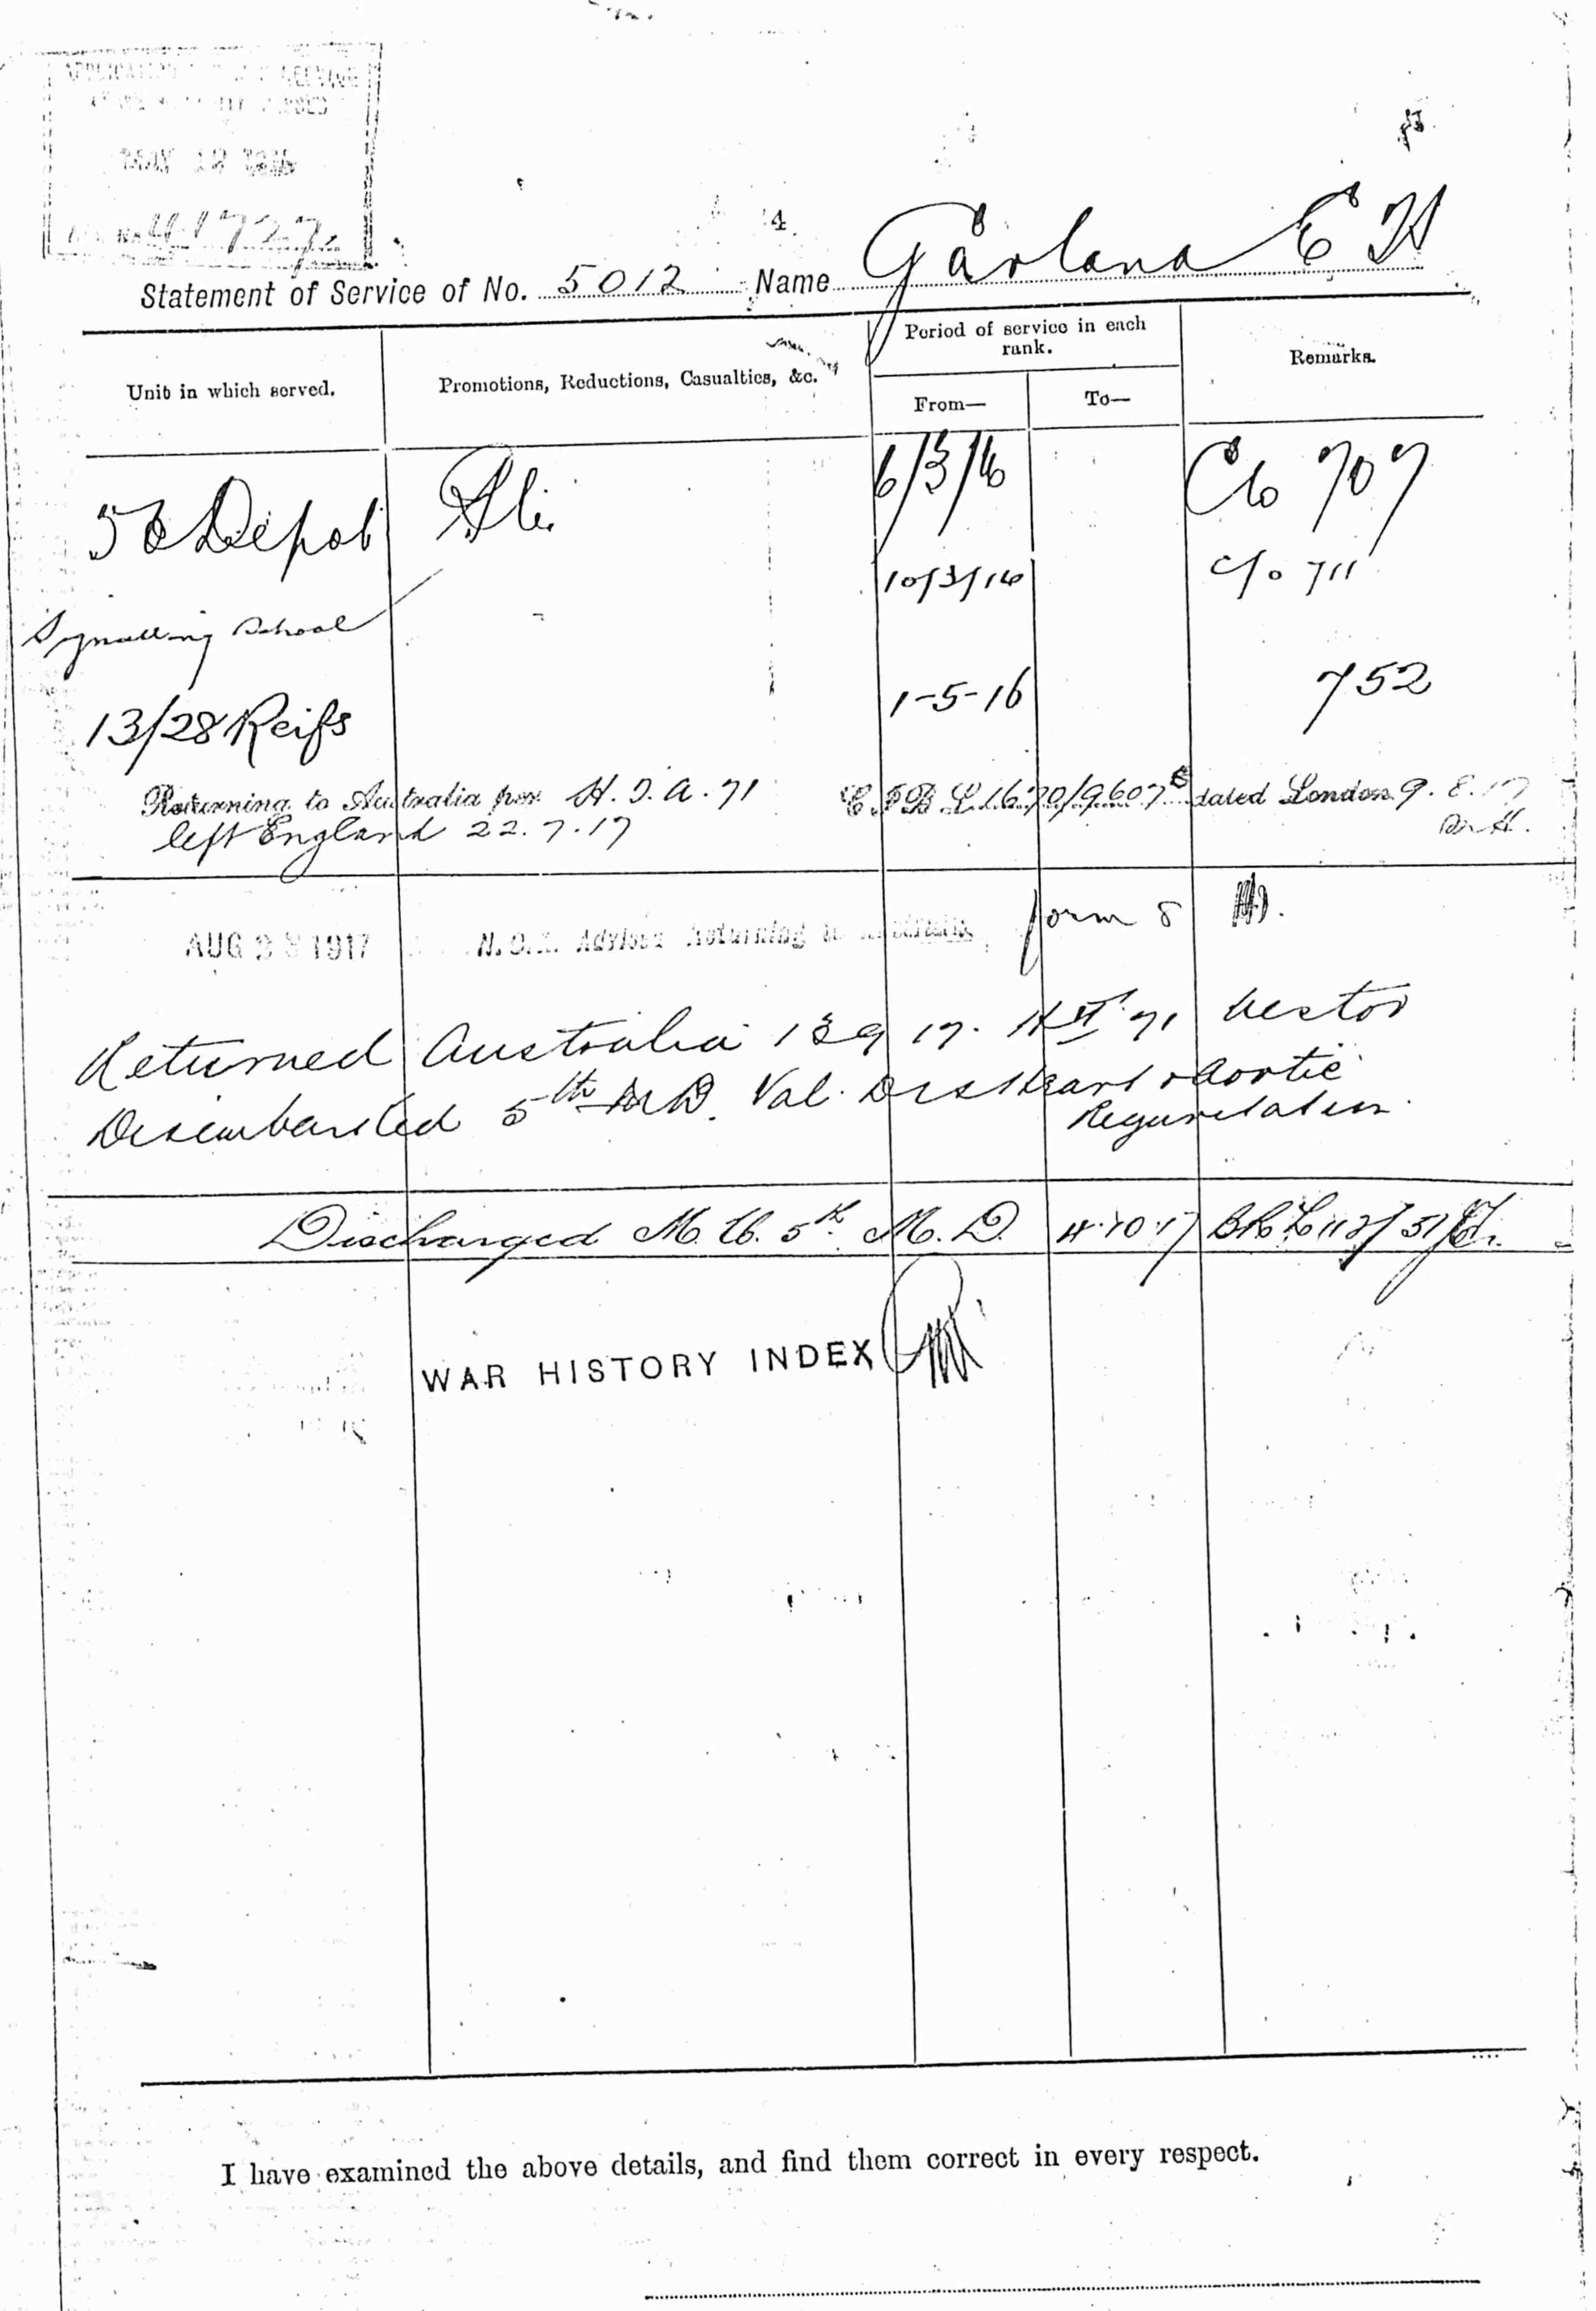 4
Statement of Service of No. 5012 Name Garland E H
Unit in which served. Promotions, Reductions, Casualties, &c. Period of service in each rank. Remarks.
From— To—
Depot Pte 6/3/16 C/o 707
Signalling School 10/3/16 C/o 711
13/28 Reifs 1-5-16 752
Returning to Australia per H.T.A. 71 dated London 9.8.17
left England 22.7.17
AUG 1917 Returning to form 8
Returned Australia 17. HT 71 Nestor
Disembarked 5th MD. Val. Dis Heart & Aortic
Regurgitation
Discharged M.U. 5th M.D. 4.10.17
WAR HISTORY INDEX
I have examined the above details, and find them correct in every respect.